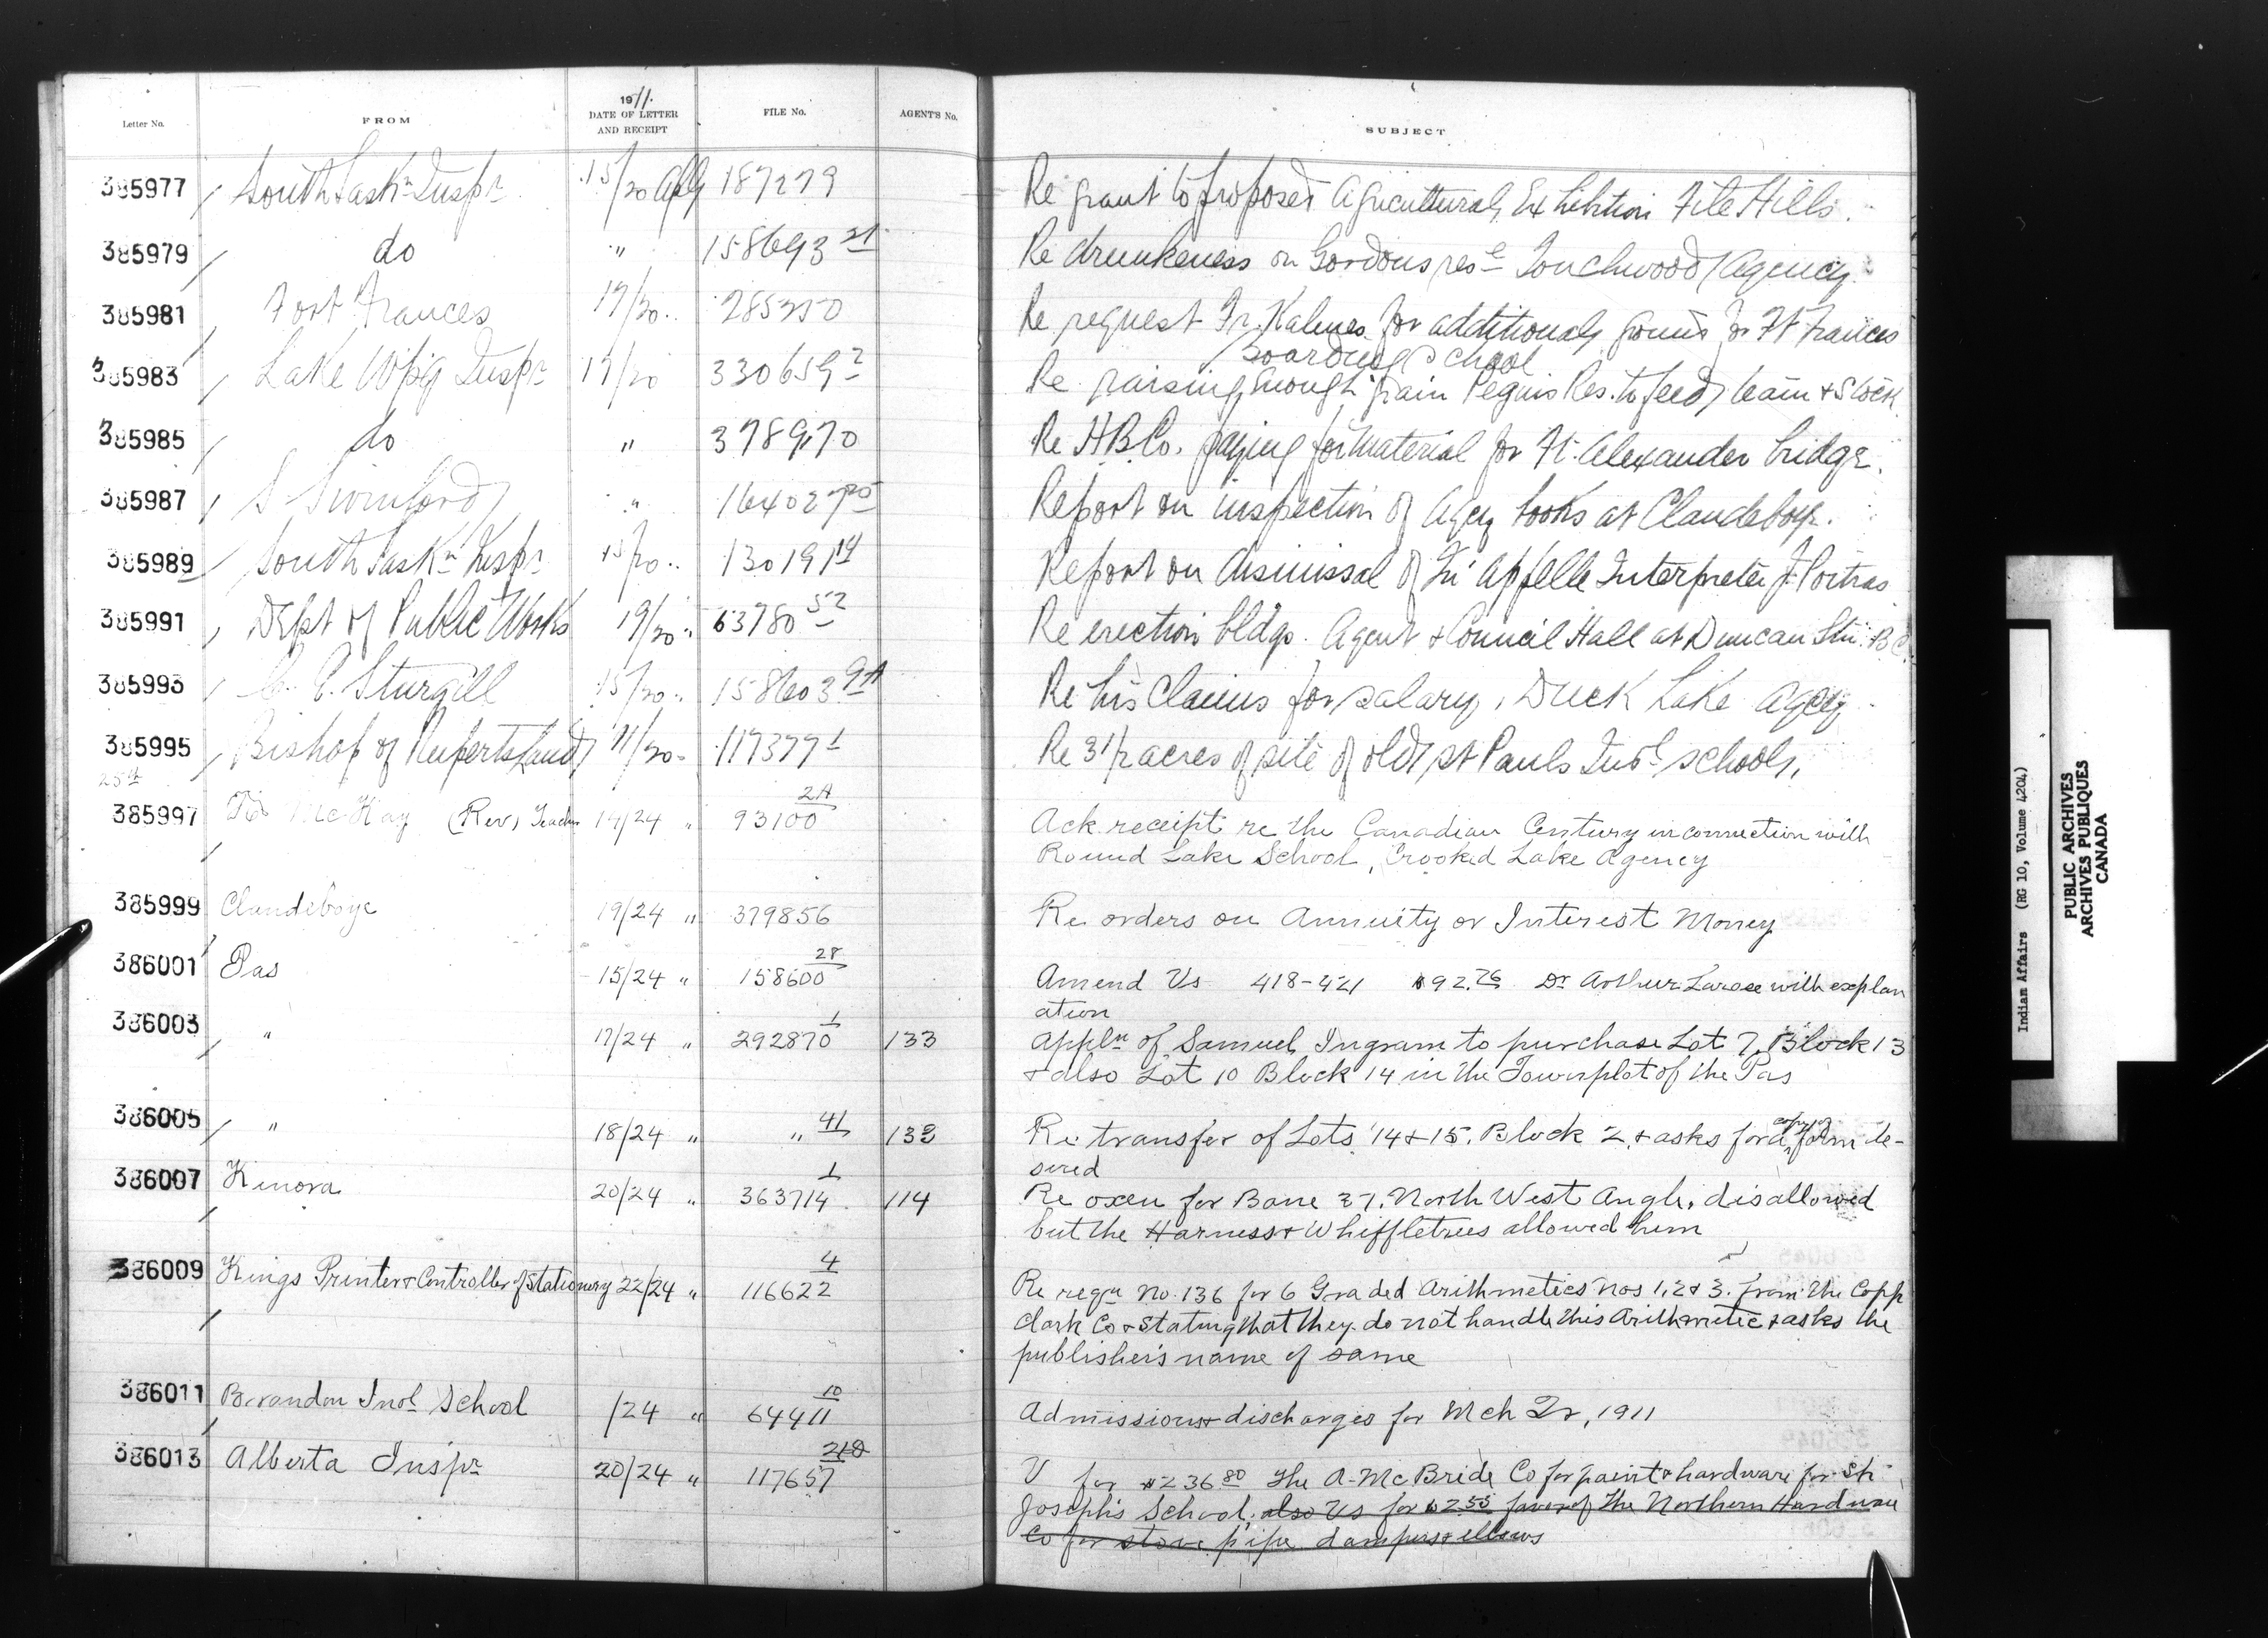 Letter No. FROM 1911. DATE OF LETTER AND RECEIPT FILE No. AGENT'S No. SUBJECT
385977 South Saskn Inspr 15/20 Apl 187279 Re grant to proposed Agricultural Exhibition File Hills.
385979 do " 158693 21 Re drunkeness on Gordons rese Touchwood Agency
385981 Fort Frances 17/20 " 285350 Re request Fr. Kalmes for additional ground for Ft Frances
Boarding School
385983 Lake Wpg Inspr 17/20 330659 2 Re raising enough grain Peguis Res. to feed team & stock
385985 do " 378970 Re H B Co. paying for material for Ft. Alexander bridge.
385987 S Swinford " 164027 Report on inspection of Agcy books at Clandeboye.
385989 South Saskn Inspr 15/20 " 130191 14 Report on dismissal of Qu'Appelle Interpreter J. Poitras
385991 Dept of Public Works 19/20 " 63780 52 Re erection bldgs. Agent & Council Hall at Duncan Stn. B.C.
385993 C. E. Sturgill 15/20 " 158603 9A Re his claims for salary, Duck Lake Agcy
385995 Bishop of Ruperts Land 11/20 " 117377 1 Re 31/2 acres of site of old St Pauls Indl schools.
25th
385997 McKay (Rev) Teacher 19/24 " 93100 2A Ack receipt re the Canadian Century in connection with
Round Lake School, Crooked Lake Agency
385999 Clandeboye 19/24 " 379856 Re orders on Annuity or Interest Money
386001 Pas 15/24 " 158600 28 Amend Vs 418-421 $92.76 Dr Arthur Larose with explan
ation
386003 " 17/24 " 292870 1 133 Appln of Samuel Ingram to purchase Lot 7, Block 13
& also Lot 10 Block 14 in the Townplot of the Pas
386005 " 18/24 " " 41 132 Re transfer of Lots 14 & 15. Block 2. & asks for a copy of form de-
sired
386007 Kenora 20/24 " 363714 1 114 Re oxen for Bane 37. North West Angle, disallowed
but the Harness & Whiffletrees allowed him
386009 Kings Printer & Controller of Stationery 22/24 " 116622 4 Re reqn No. 136 for 6 Graded Arithmetics Nos 1, 2 & 3. from the Copp
Clark Co & stating that they do not handle this Arithmetic & asks the
publisher's name of same
386011 Brandon Indl School /24 " 64411 10 Admissions & discharges for Mch Qr, 1911
386013 Alberta Inspr 20/24 " 117657 V for $236.80 The A. McBride Co for paint & hardware for St
Joseph's School, also Vs for $2.55 favor of the Northern Hardware
Co for stove pipe dampers & elbows
Indian Affairs (RG 10, Volume 4204)
PUBLIC ARCHIVES
ARCHIVES PUBLIQUES
CANADA